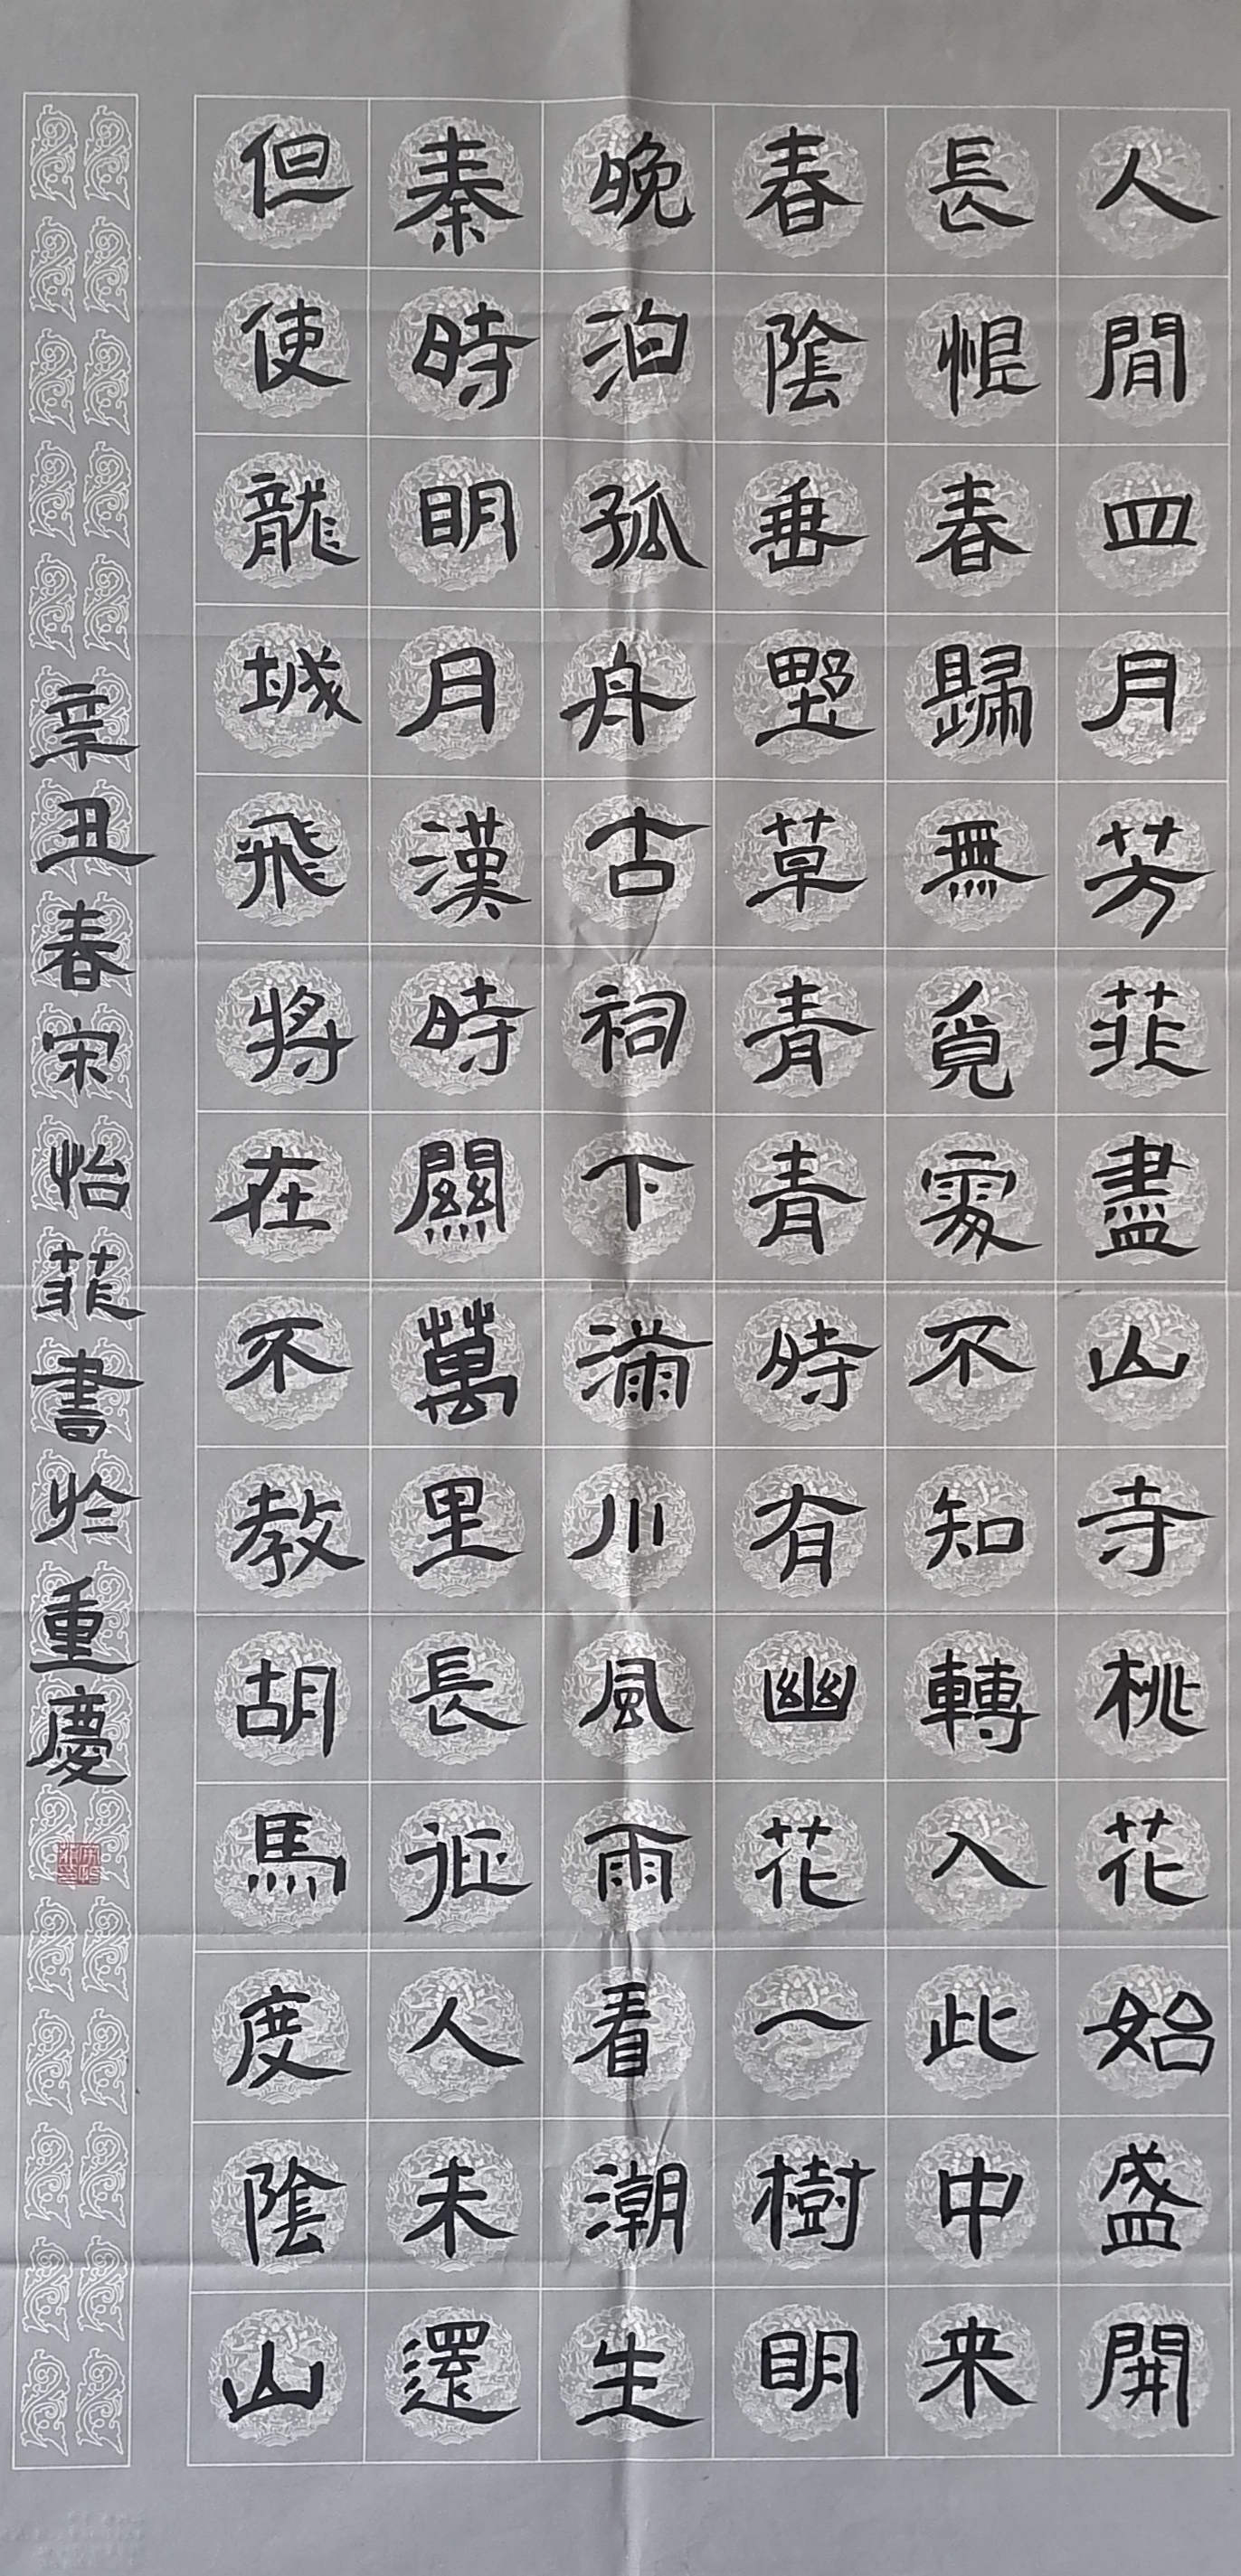 人間四月芳菲盡山寺桃花始盛開
長恨春歸無覓處不知轉入此中来
春陰垂野草青青時有幽花一樹明
晚泊孤舟古祠下滿川風雨看潮生
秦時明月漢時關萬里長征人未還
但使龍城飛將在不教胡馬度陰山
辛丑春宋怡菲書於重慶